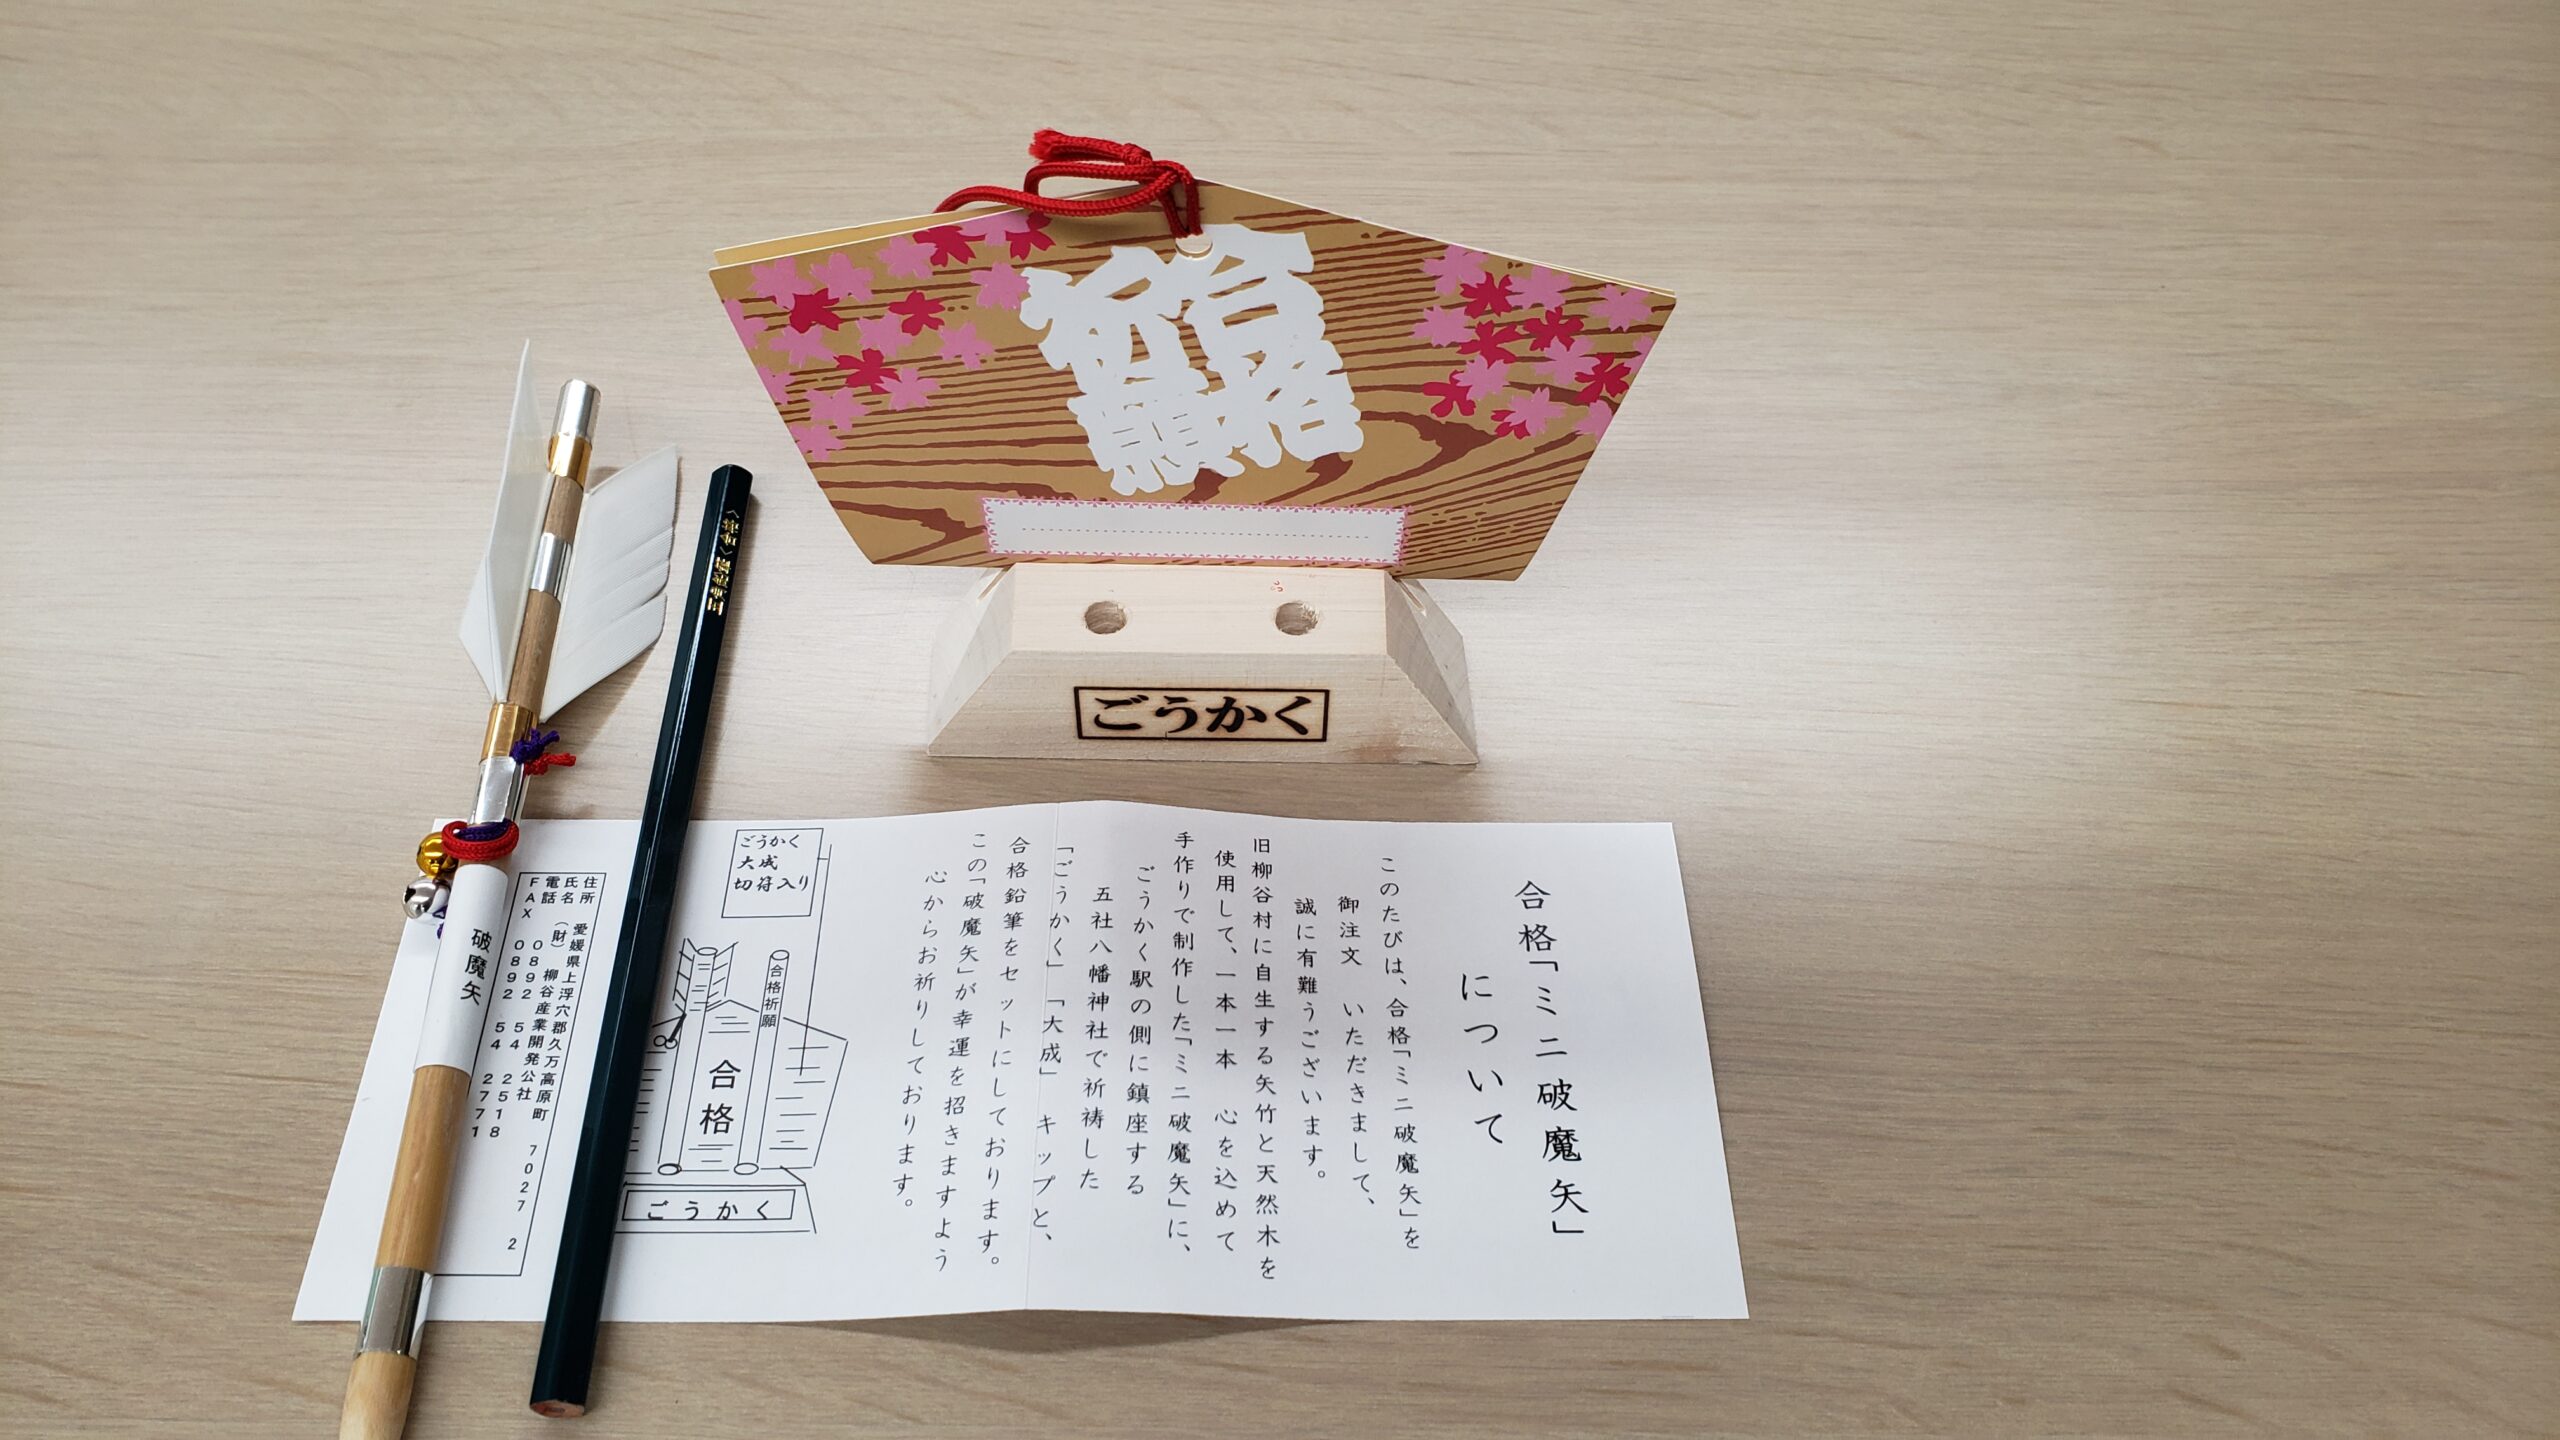 合格
祈願
ごうかく
破魔矢
合格「ミニ破魔矢」
について
このたびは、合格「ミニ破魔矢」を
御注文　いただきまして、
誠に有難うございます。
旧柳谷村に自生する矢竹と天然木を
使用して、一本一本　心を込めて
手作りで制作した「ミニ破魔矢」に、
ごうかく駅の側に鎮座する
五社八幡神社で祈祷した
「ごうかく」「大成」　キップと、
合格鉛筆をセットにしております。
この「破魔矢」が幸運を招きますよう
心からお祈りしております。
ごうかく
大成
切符入り
合格祈願
合格
ごうかく
住所　愛媛県上浮穴郡久万高原町　7027　2
氏名　（財）柳谷産業開発公社
電話　0892　54　2518
FAX　0892　54　2771